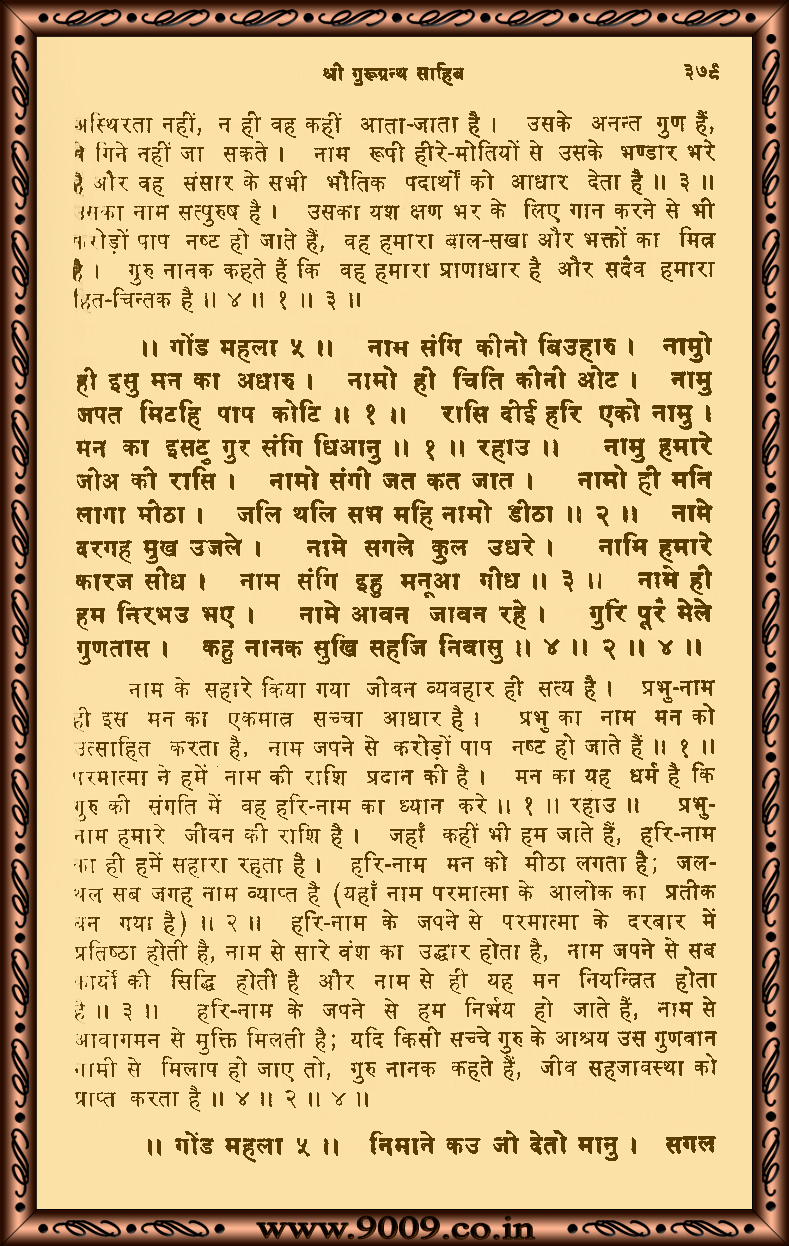 श्री गुरूग्रन्थ साहिब ३७९
अस्थिरता नहीं, न ही वह कहीं आता-जाता है । उसके अनन्त गुण हैं,
गिने नहीं जा सकते । नाम रूपी हीरे-मोतियों से उसके भण्डार भरे
है और वह संसार के सभी भौतिक पदार्थों को आधार देता है ॥ ३ ॥
उसका नाम सत्पुरुष है । उसका यश क्षण भर के लिए गान करने से भी
करोड़ों पाप नष्ट हो जाते हैं, वह हमारा बाल-सखा और भक्तों का मित्र
है । गुरु नानक कहते हैं कि वह हमारा प्राणाधार है और सदैव हमारा
हित-चिन्तक है ॥ ४ ॥ १ ॥ ३ ॥
॥ गोंड महला ५ ॥ नाम संगि कीनो बिउहारु । नामो
ही इसु मन का अधारु । नामो ही चिति कीनी ओट । नामु
जपत मिटहि पाप कोटि ॥ १ ॥ रासि दीई हरि एको नामु ।
मन का इसटु गुर संगि धिआनु ॥ १ ॥ रहाउ ॥ नामु हमारे
जीअ की रासि । नामो संगी जत कत जात । नामो ही मनि
लागा मीठा । जलि थलि सभ महि नामो डीठा ॥ २ ॥ नामे
दरगह मुख उजले । नामे सगले कुल उधरे । नामि हमारे
कारज सीध । नाम संगि इहु मनूआ गीध ॥ ३ ॥ नामे ही
हम निरभउ भए । नामे आवन जावन रहे । गुरि पूरै मेले
गुणतास । कहु नानक सुखि सहजि निवासु ॥ ४ ॥ २ ॥ ४ ॥
नाम के सहारे किया गया जीवन व्यवहार ही सत्य है । प्रभु-नाम
ही इस मन का एकमात्र सच्चा आधार है । प्रभु का नाम मन को
उत्साहित करता है, नाम जपने से करोड़ों पाप नष्ट हो जाते हैं ॥ १ ॥
परमात्मा ने हमें नाम की राशि प्रदान की है । मन का यह धर्म है कि
गुरु की संगति में वह हरि-नाम का ध्यान करे ॥ १ ॥ रहाउ ॥ प्रभु-
नाम हमारे जीवन की राशि है । जहाँ कहीं भी हम जाते हैं, हरि-नाम
का ही हमें सहारा रहता है । हरि-नाम मन को मीठा लगता है; जल-
थल सब जगह नाम व्याप्त है (यहाँ नाम परमात्मा के आलोक का प्रतीक
बन गया है) ॥ २ ॥ हरि-नाम के जपने से परमात्मा के दरबार में
प्रतिष्ठा होती है, नाम से सारे वंश का उद्धार होता है, नाम जपने से सब
कार्यों की सिद्धि होती है और नाम से ही यह मन नियन्त्रित होता
है ॥ ३ ॥ हरि-नाम के जपने से हम निर्भय हो जाते हैं, नाम से
आवागमन से मुक्ति मिलती है; यदि किसी सच्चे गुरु के आश्रय उस गुणवान
से मिलाप हो जाए तो, गुरु नानक कहते हैं, जीव सहजावस्था को
प्राप्त करता है ॥ ४ ॥ २ ॥ ४ ॥
॥ गोंड महला ५ ॥ निमाने कउ जो देतो मानु । सगल
www.9009.co.in